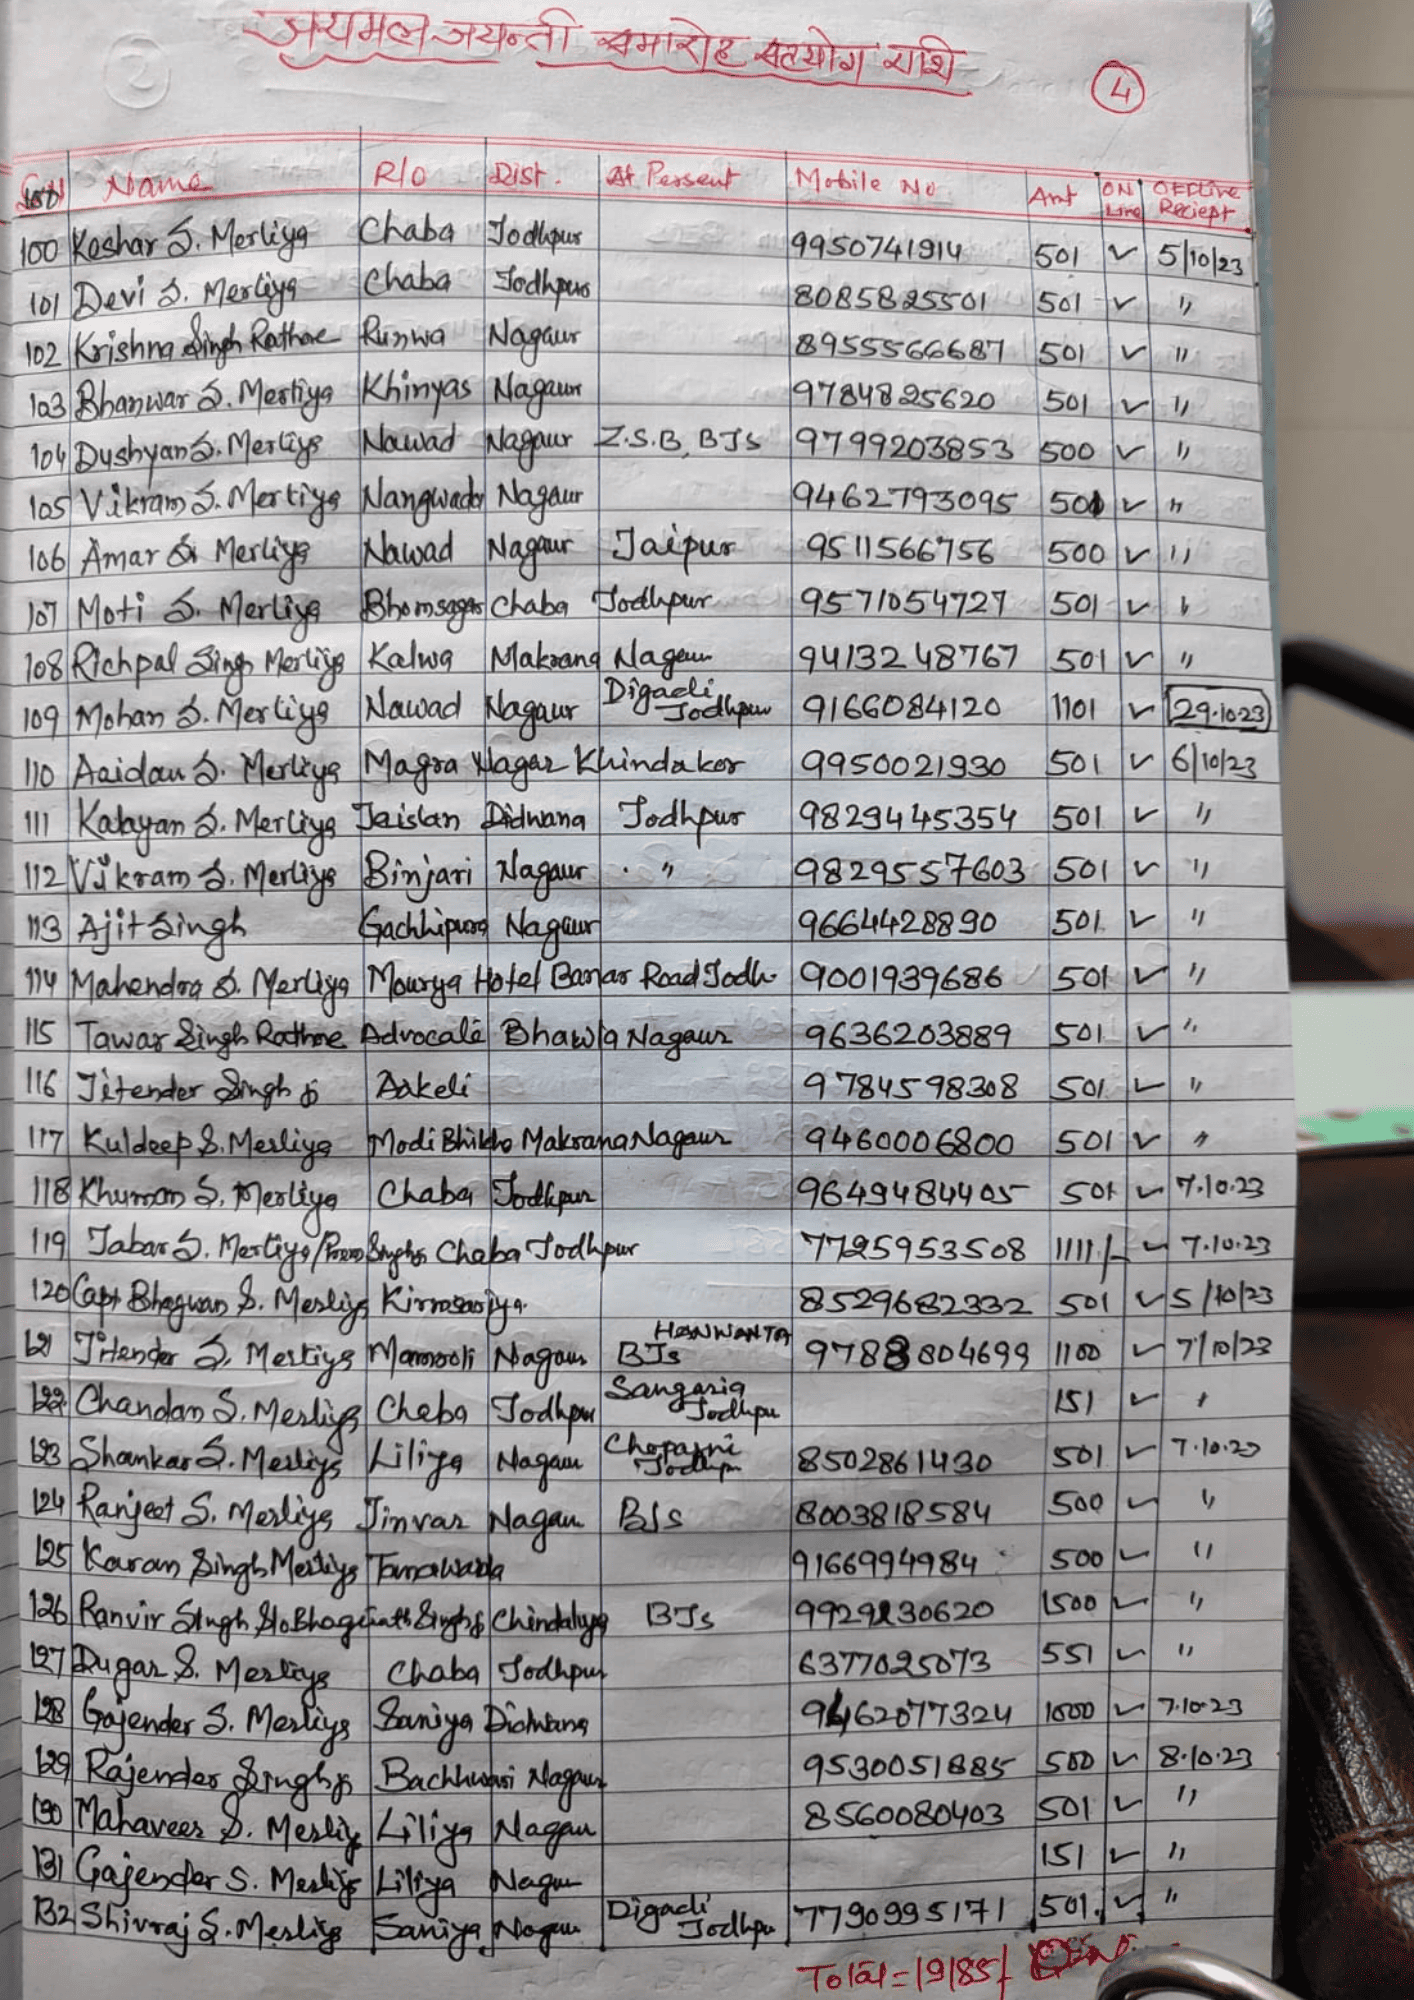 जयमल जयन्ती समारोह सहयोग राशि
4
S.N Name R/o Dist. At Persent Mobile No Amt ON Line OFFLine Reciept
100 Keshar S. Mertiya Chaba Jodhpur 9950741914 501 ✓ 5/10/23
101 Devi S. Mertiya Chaba Jodhpur 8085825501 501 ✓ "
102 Krishna Singh Rathore Runwa Nagaur 8955566687 501 ✓ "
103 Bhanwar S. Mertiya Khinyas Nagaur 9784825620 501 ✓ "
104 Dushyan S. Mertiya Nawad Nagaur Z.S.B, BJS 9799203853 500 ✓ "
105 Vikram S. Mertiya Nangwada Nagaur 9462793095 501 ✓ "
106 Amar S. Mertiya Nawad Nagaur Jaipur 9511566756 500 ✓ "
107 Moti S. Mertiya Bhomsagar Chaba Jodhpur 9571054727 501 ✓ "
108 Richpal Singh Mertiya Kalwa Makrana Nagaur 9413248767 501 ✓ "
109 Mohan S. Mertiya Nawad Nagaur Digadi Jodhpur 9166084120 1101 ✓ 29.10.23
110 Aaidan S. Mertiya Magra Nagar Khindakor 9950021930 501 ✓ 6/10/23
111 Kalayan S. Mertiya Jaislan Didwana Jodhpur 9829445354 501 ✓ "
112 Vikram S. Mertiya Binjari Nagaur " 9829557603 501 ✓ "
113 Ajit Singh Gachhipura Nagaur 9664428890 501 ✓ "
114 Mahendra S. Mertiya Mourya Hotel Banar Road Jodh. 9001939686 501 ✓ "
115 Tawar Singh Rathore Advocate Bhawla Nagaur 9636203889 501 ✓ "
116 Jitender Singh ji Aakeli 9784598308 501 ✓ "
117 Kuldeep S. Mertiya Modi Bhikho Makrana Nagaur 9460006800 501 ✓ "
118 Khuman S. Mertiya Chaba Jodhpur 9649484405 501 ✓ 7.10.23
119 Jabar S. Mertiya/Prem Singh ji Chaba Jodhpur 7725953508 1111/- ✓ 7.10.23
120 Capt Bhagwan S. Mertiya 8529682332 501 ✓ 5/10/23
121 Jitender S. Mertiya Mamroli Nagaur HANWANTA BJS 9788804699 1100 ✓ 7/10/23
122 Chandan S. Mertiya Chaba Jodhpur Sangaria Jodhpur 151 ✓ "
123 Shankar S. Mertiya Liliya Nagaur Chopasni Jodhpur 8502861430 501 ✓ 7.10.23
124 Ranjeet S. Mertiya Jinvar Nagaur BJS 8003818584 500 ✓ "
125 Karan Singh Mertiya Tanawada 9166994984 500 ✓ "
126 Ranvir Singh S/o Bhagirath Singh ji Chindaliya BJS 9929230620 1500 ✓ "
127 Dugar S. Mertiya Chaba Jodhpur 6377025073 551 ✓ "
128 Gajender S. Mertiya Saniya Didwana 9462077324 1000 ✓ 7.10.23
129 Rajender Singh ji Bachhwari Nagaur 9530051885 500 ✓ 8.10.23
130 Mahaveer S. Mertiya Liliya Nagaur 8560080403 501 ✓ "
131 Gajender S. Mertiya Liliya Nagaur 151 ✓ "
132 Shivraj S. Mertiya Saniya Nagaur Digadi Jodhpur 7790995171 501 ✓ "
Total = 19185/